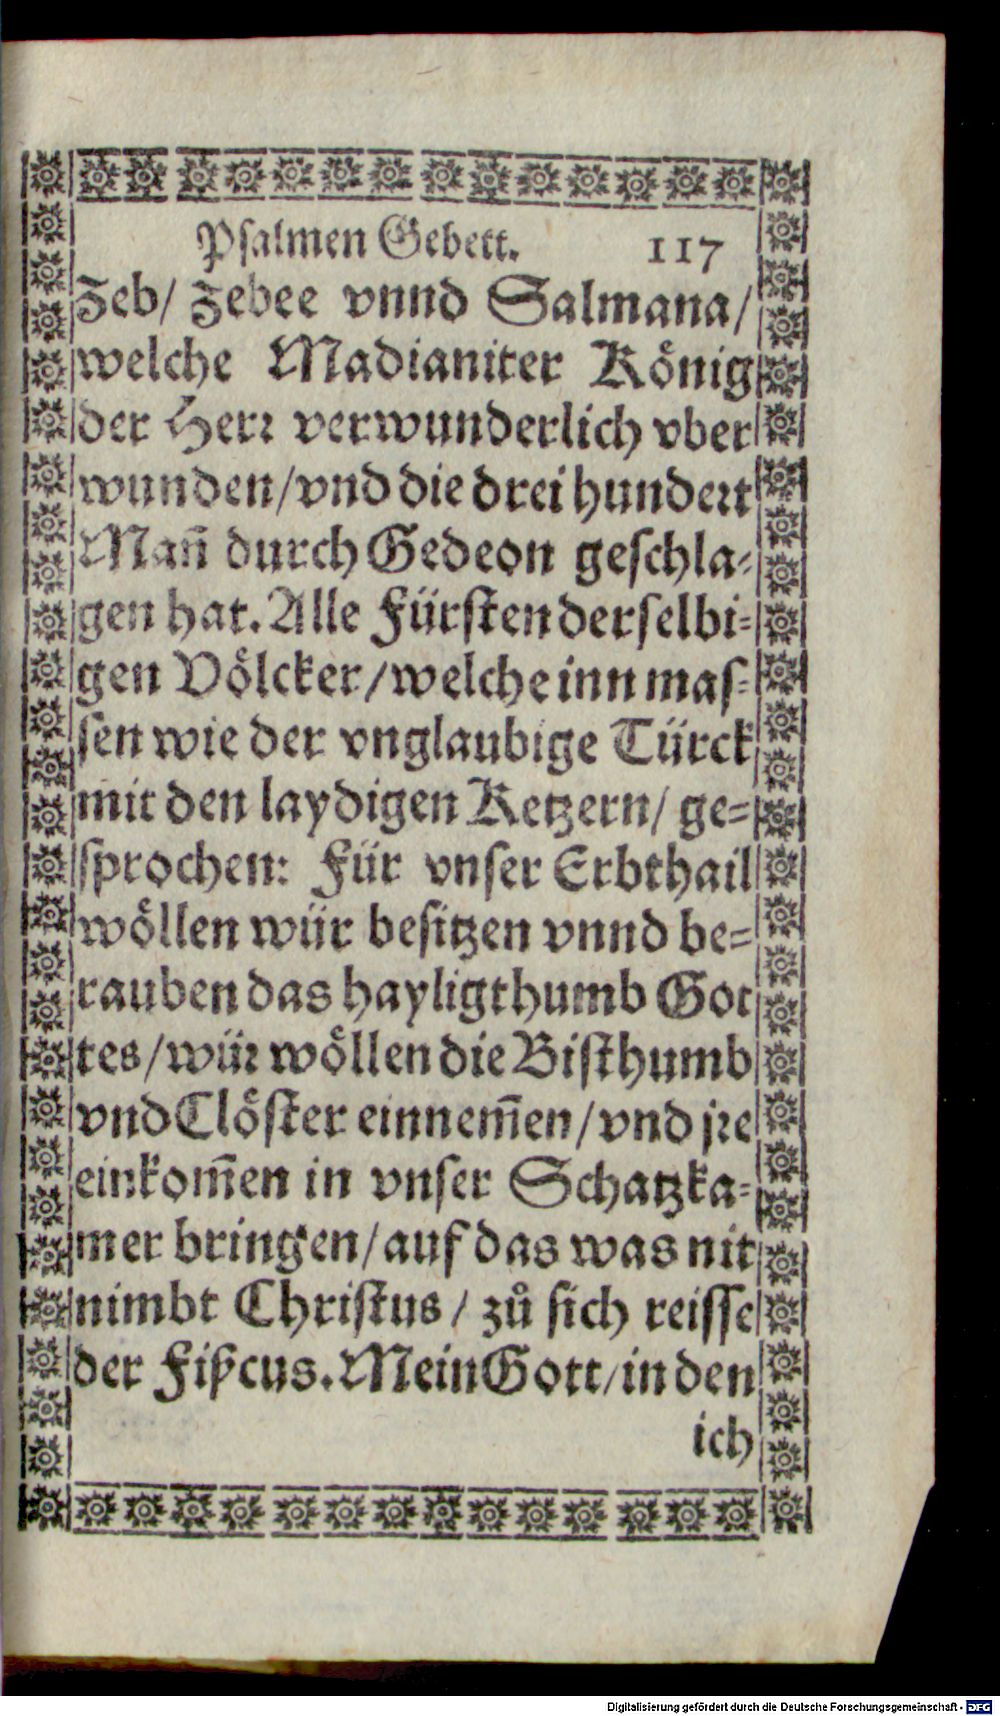 Psalmen Gebett. 117
Zeb/ Zebee vnnd Salmana/
welche Madianiter König
der Herr verwunderlich vber
wunden/vnd die drei hundert
Mañ durch Gedeon geschla-
gen hat. Alle Fürsten derselbi-
gen Völcker/welche inn mas-
sen wie der vnglaubige Türck
mit den laydigen Ketzern/ ge-
sprochen: Für vnser Erbthail
wöllen wür besitzen vnnd be-
rauben das hayligthumb Got
tes/wür wöllen die Bisthumb
vnd Clöster einnem̃en/vnd jre
einkom̃en in vnser Schatzka-
mer bringen/auf das was nit
nimbt Christus/ zů sich reisse
der Fißcus. Mein Gott/in den
ich
Digitalisierung gefördert durch die Deutsche Forschungsgemeinschaft - DFG